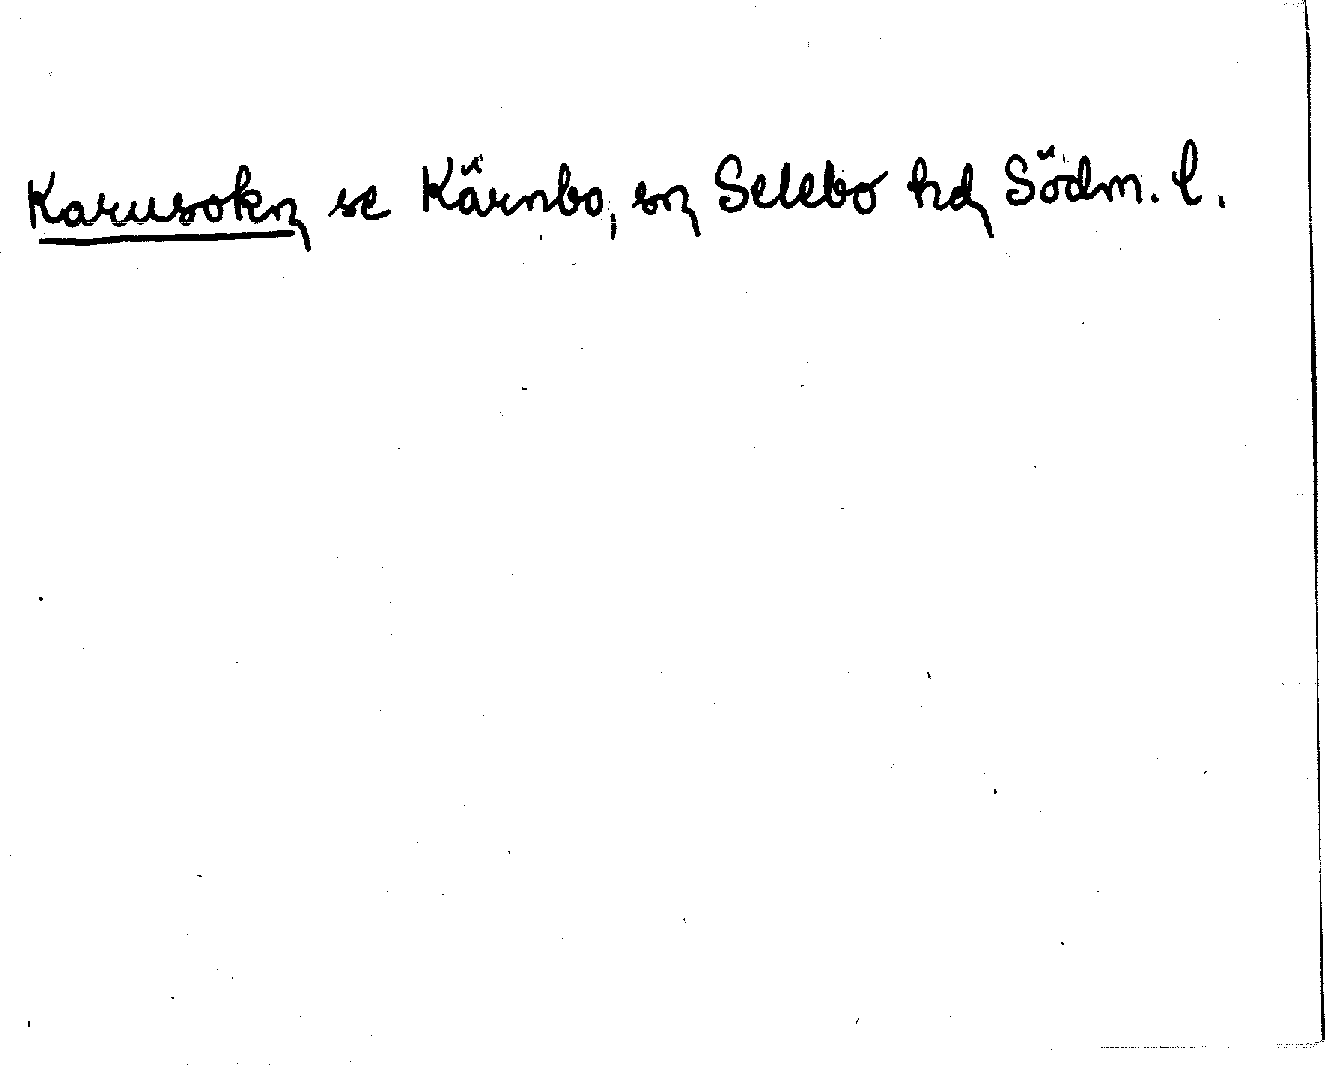 Karusokn se Kärnbo, sn Selebo hd Södm. l.